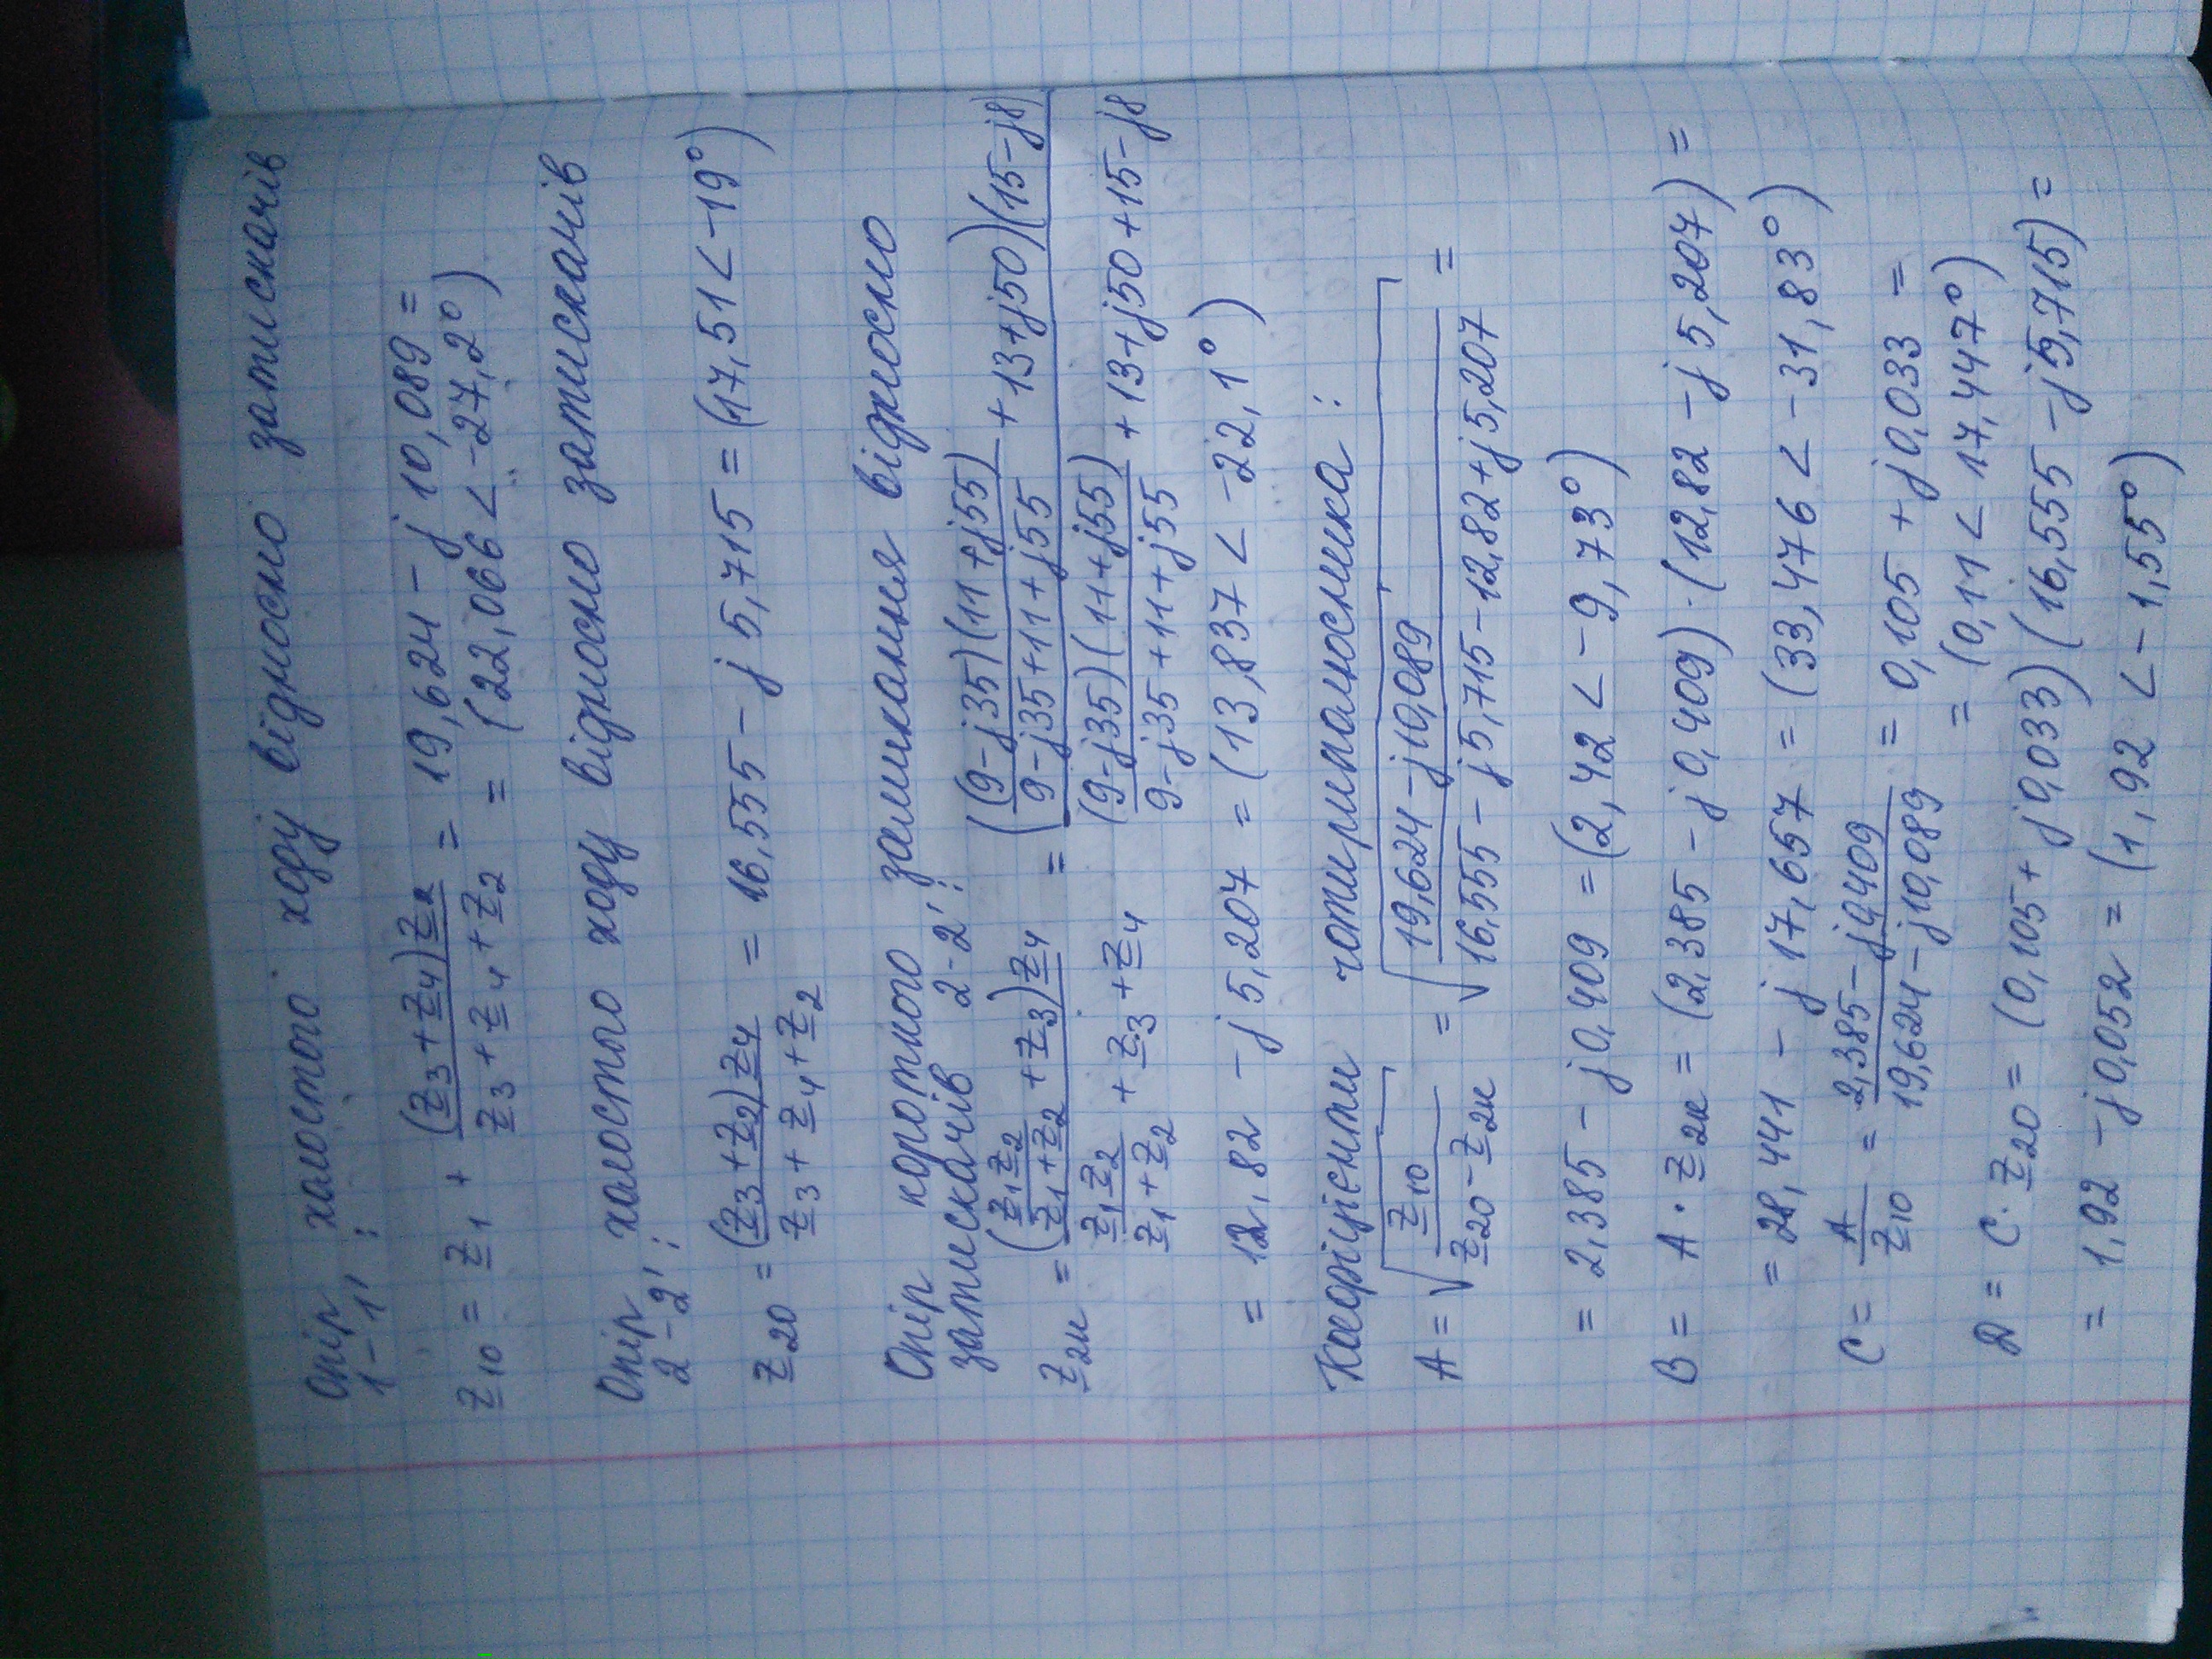 Опір холостого ходу відносно затискачів
1-1':
Z10 = Z1 + (Z3+Z4)Z2 / Z3+Z4+Z2 = 19,624 - j 10,089 =
= (22,066 < -27,2°)
Опір холостого ходу відносно затискачів
2-2':
Z20 = (Z3+Z2)Z4 / Z3+Z4+Z2 = 16,555 - j 5,715 = (17,51 < -19°)
Опір короткого замикання відносно
затискачів 2-2':
Z2к = (Z1Z2 / Z1+Z2 + Z3)Z4 / Z1Z2 / Z1+Z2 + Z3 + Z4 = ((9-j35)(11+j55) / 9-j35+11+j55 + 13+j50)(15-j8) / (9-j35)(11+j55) / 9-j35+11+j55 + 13+j50+15-j8
= 12,82 - j 5,207 = (13,837 < -22,1°)
Коефіцієнти чотириполюсника:
A = √ Z10 / Z20-Z2к = √ 19,624-j10,089 / 16,555-j5,715-12,82+j5,207 =
= 2,385 - j0,409 = (2,42 < -9,73°)
B = A · Z2к = (2,385 - j0,409)·(12,82 - j 5,207) =
= 28,441 - j 17,657 = (33,476 < -31,83°)
C = A / Z10 = 2,385-j0,409 / 19,624-j10,089 = 0,105 + j0,033 =
= (0,11 < 17,447°)
D = C · Z20 = (0,105 + j0,033)(16,555 - j5,715) =
= 1,92 - j0,052 = (1,92 < -1,55°)